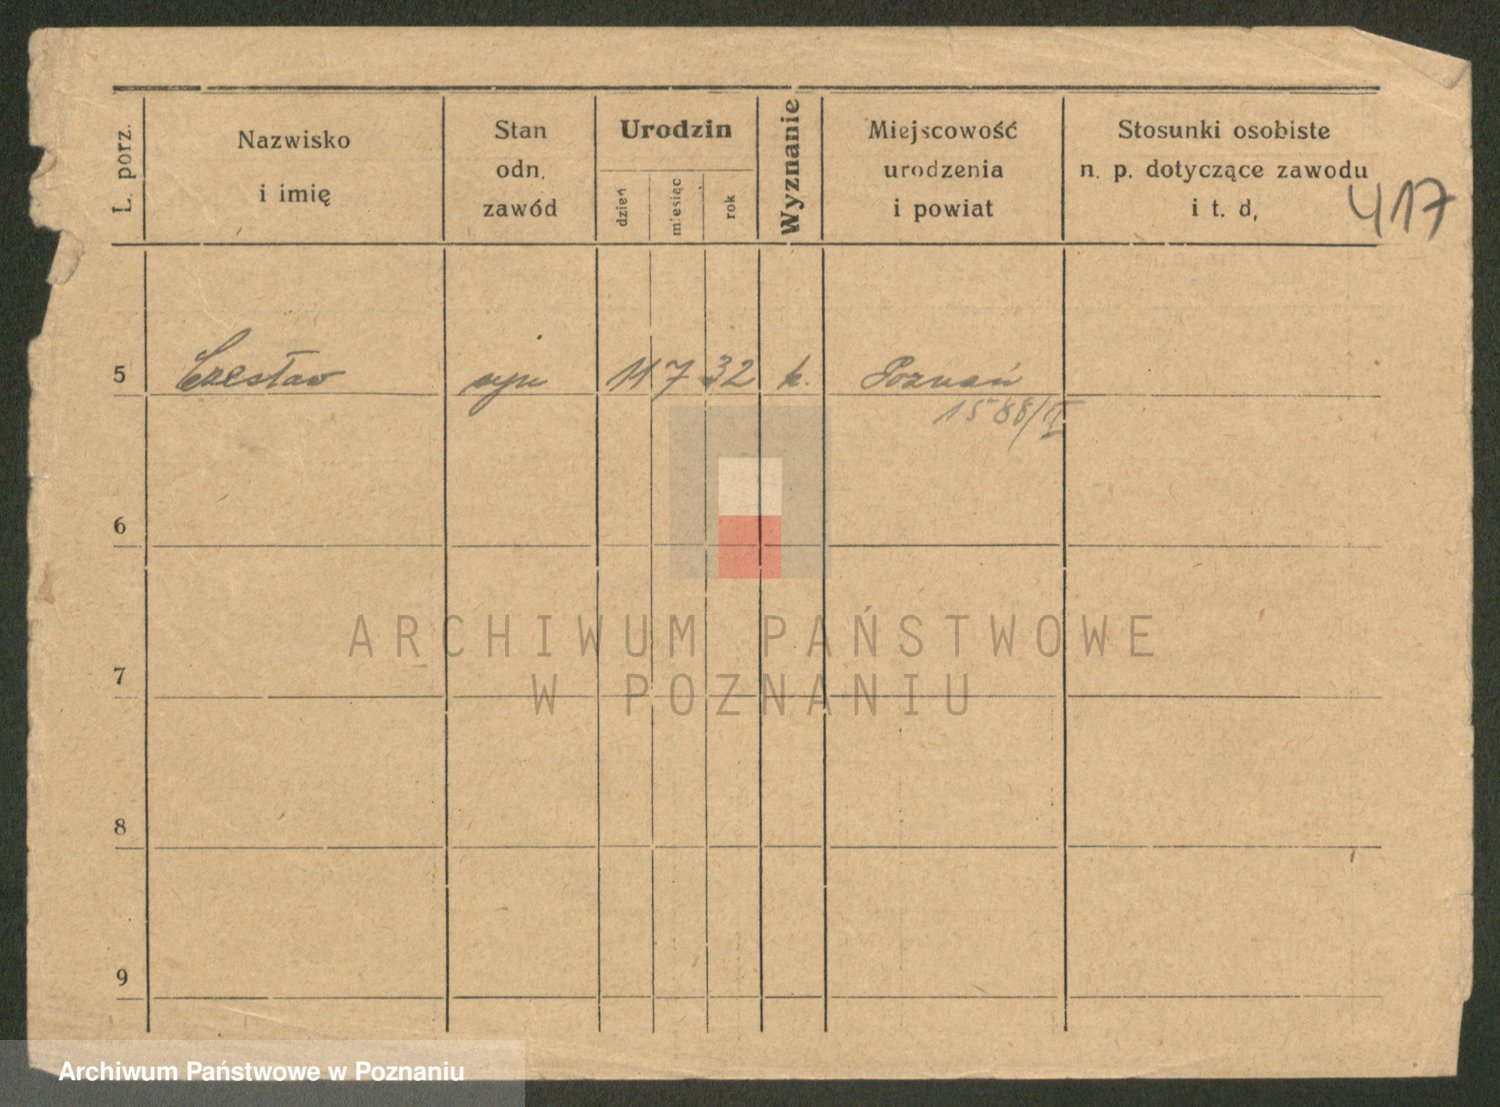 L. porz.
Nazwisko
i imię
Stan
odn.
zawód
Urodzin
dzień
miesiąc
rok
Wyznanie
Miejscowość
urodzenia
i powiat
Stosunki osobiste
n. p. dotyczące zawodu
i t. d,
417
5 Czesław syn 11 7 32 k. Poznań
1588/II
6
7
8
9
ARCHIWUM PAŃSTWOWE
W POZNANIU
Archiwum Państwowe w Poznaniu